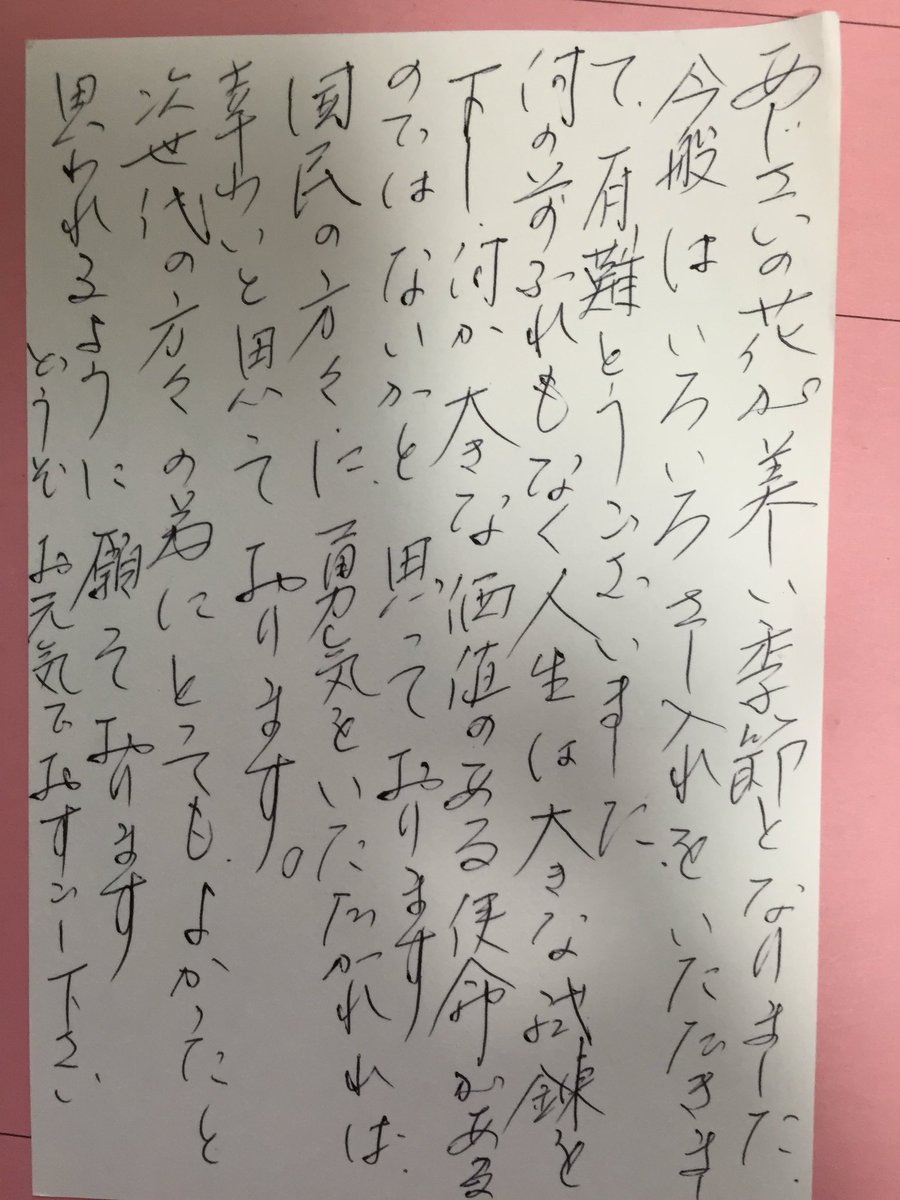 あじさいの花が美しい季節となりました
今般はいろいろさし入れをいただきまし
て、有難とうございました
何の前ぶれもなく人生は大きな試錬を
下し、何か大きな価値のある使命がある
のではないかと思っております
国民の方々に勇気をいただかれれば
幸わいと思っております。
次世代の方々の為にとってもよかったと
思われるように願っております
どうぞお元気でおすごし下さい